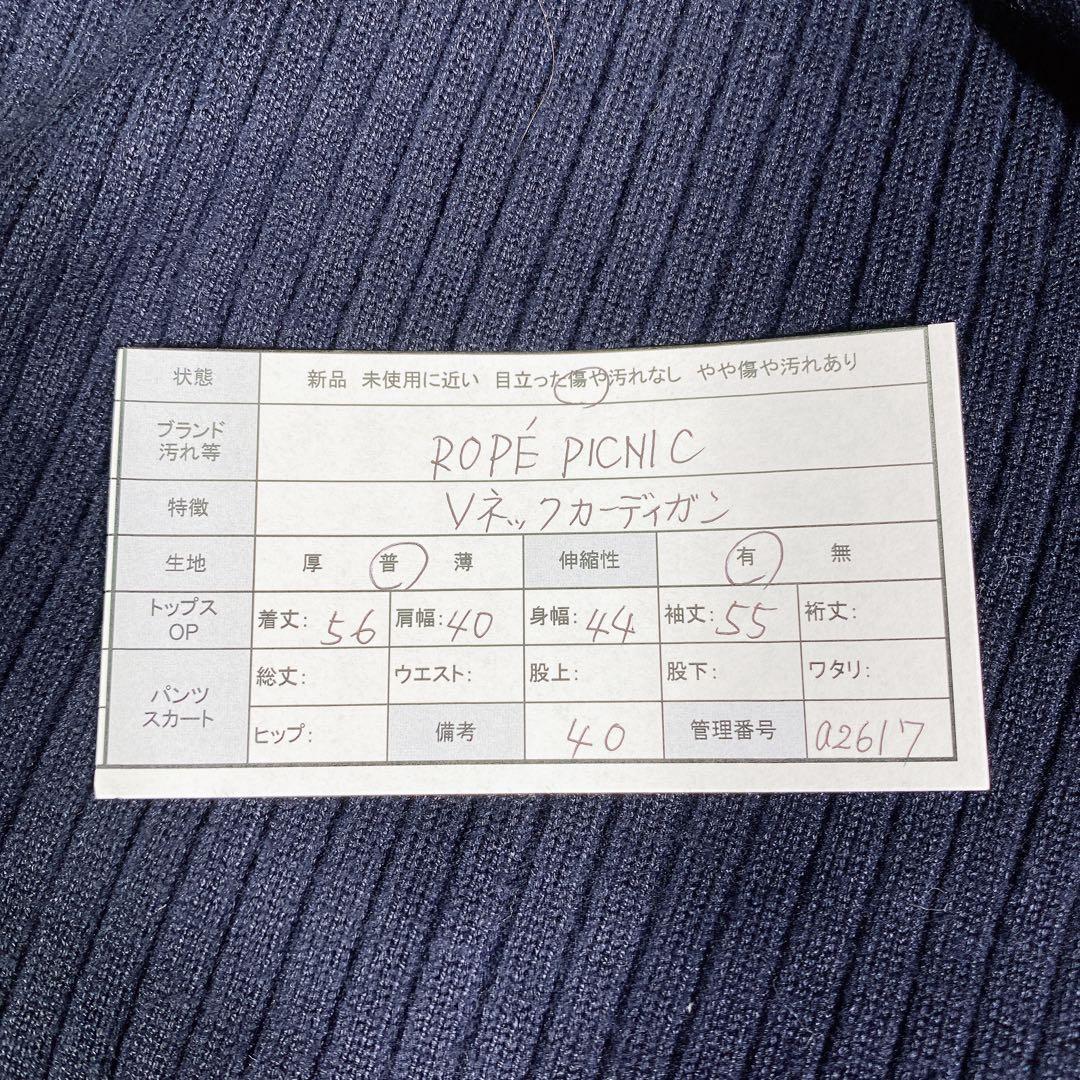 状態 新品 未使用に近い 目立った傷や汚れなし やや傷や汚れあり
ブランド
汚れ等 ROPÉ PICNIC
特徴 Vネックカーディガン
生地 厚 普 薄 伸縮性 有 無
トップス
OP 着丈: 56 肩幅: 40 身幅: 44 袖丈: 55 裄丈:
パンツ
スカート 総丈: ウエスト: 股上: 股下: ワタリ:
ヒップ: 備考 40 管理番号 a2617